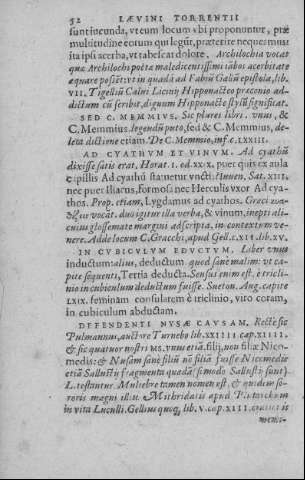 52 LÆVINI TORRENTII
sunt iucunda, vt eum locum vbi proponuntur, præ
multitudine eorum qui legūt, præterire nequeamus:
ita ipsi acerba, vt tabescat dolore. Archilochia vocat
quæ Archilochi poëta maledicentissimi iābos acerbitate
æquare possēt: vt in quadā ad Fabiū Galiū epistola, lib.
VII. Tigelliū Calui Licinij Hipponacteo præconio ad-
dictum cū scribit, dignum Hipponacte stylū significat.
SED C. MEMMIVS. Sic plures libri. vnus, &
C. Memmius. legendū puto, sed & C. Memmius, de-
leta dictione etiam. De C. Memmio, inf. c. LXXIII.
AD CYATHVM ET VINVM. Ad cyathū
dixisse satis erat. Horat. I. od. XXIX. puer quis ex aula
capillis Ad cyathū statuetur vnctis: Iuuen. Sat. XIII.
nec puer Iliacus, formosa nec Herculis vxor Ad cya-
thos. Prop. etiam, Lygdamus ad cyathos. Græci
vocat. duo igitur illa verba, & vinum, inepti ali-
cuius glossemate margini adscripta, in contextum ve-
nere. Adde locum C. Gracchi, apud Gell. c. XII lib. XV.
IN CVBICVLVM EDVCTVM. Liber vnus
inductum: alius, deductum. quod sanè malim: vt ca-
pite sequenti, Tertia deducta. Sensus enim est, è triclin-
io in cubiculum deductum fuisse. Sueton. Aug. capite
LXIX. feminam consularem è triclinio, viro coram,
in cubiculum abductam.
DEFENDENTI NYSÆ CAVSAM. Rectè sic
Pulmannus, auctore Turnebo lib. XXIIII cap. XIIII.
& sic quatuor nostri MS. vnus etiā, filij, non filiæ Nico-
medis: & Nusam sanè filiū nō filiā fuisse Nicomedis
etiā Sallustij fragmenta quædā (si modo Sallustij sunt)
L. testantur. Muliebre tamen nomen est, & quidem so-
roris magni illius Mithridatis apud Plutarchum
in vita Luculli. Gellius quoq; lib. V. cap. XIII.